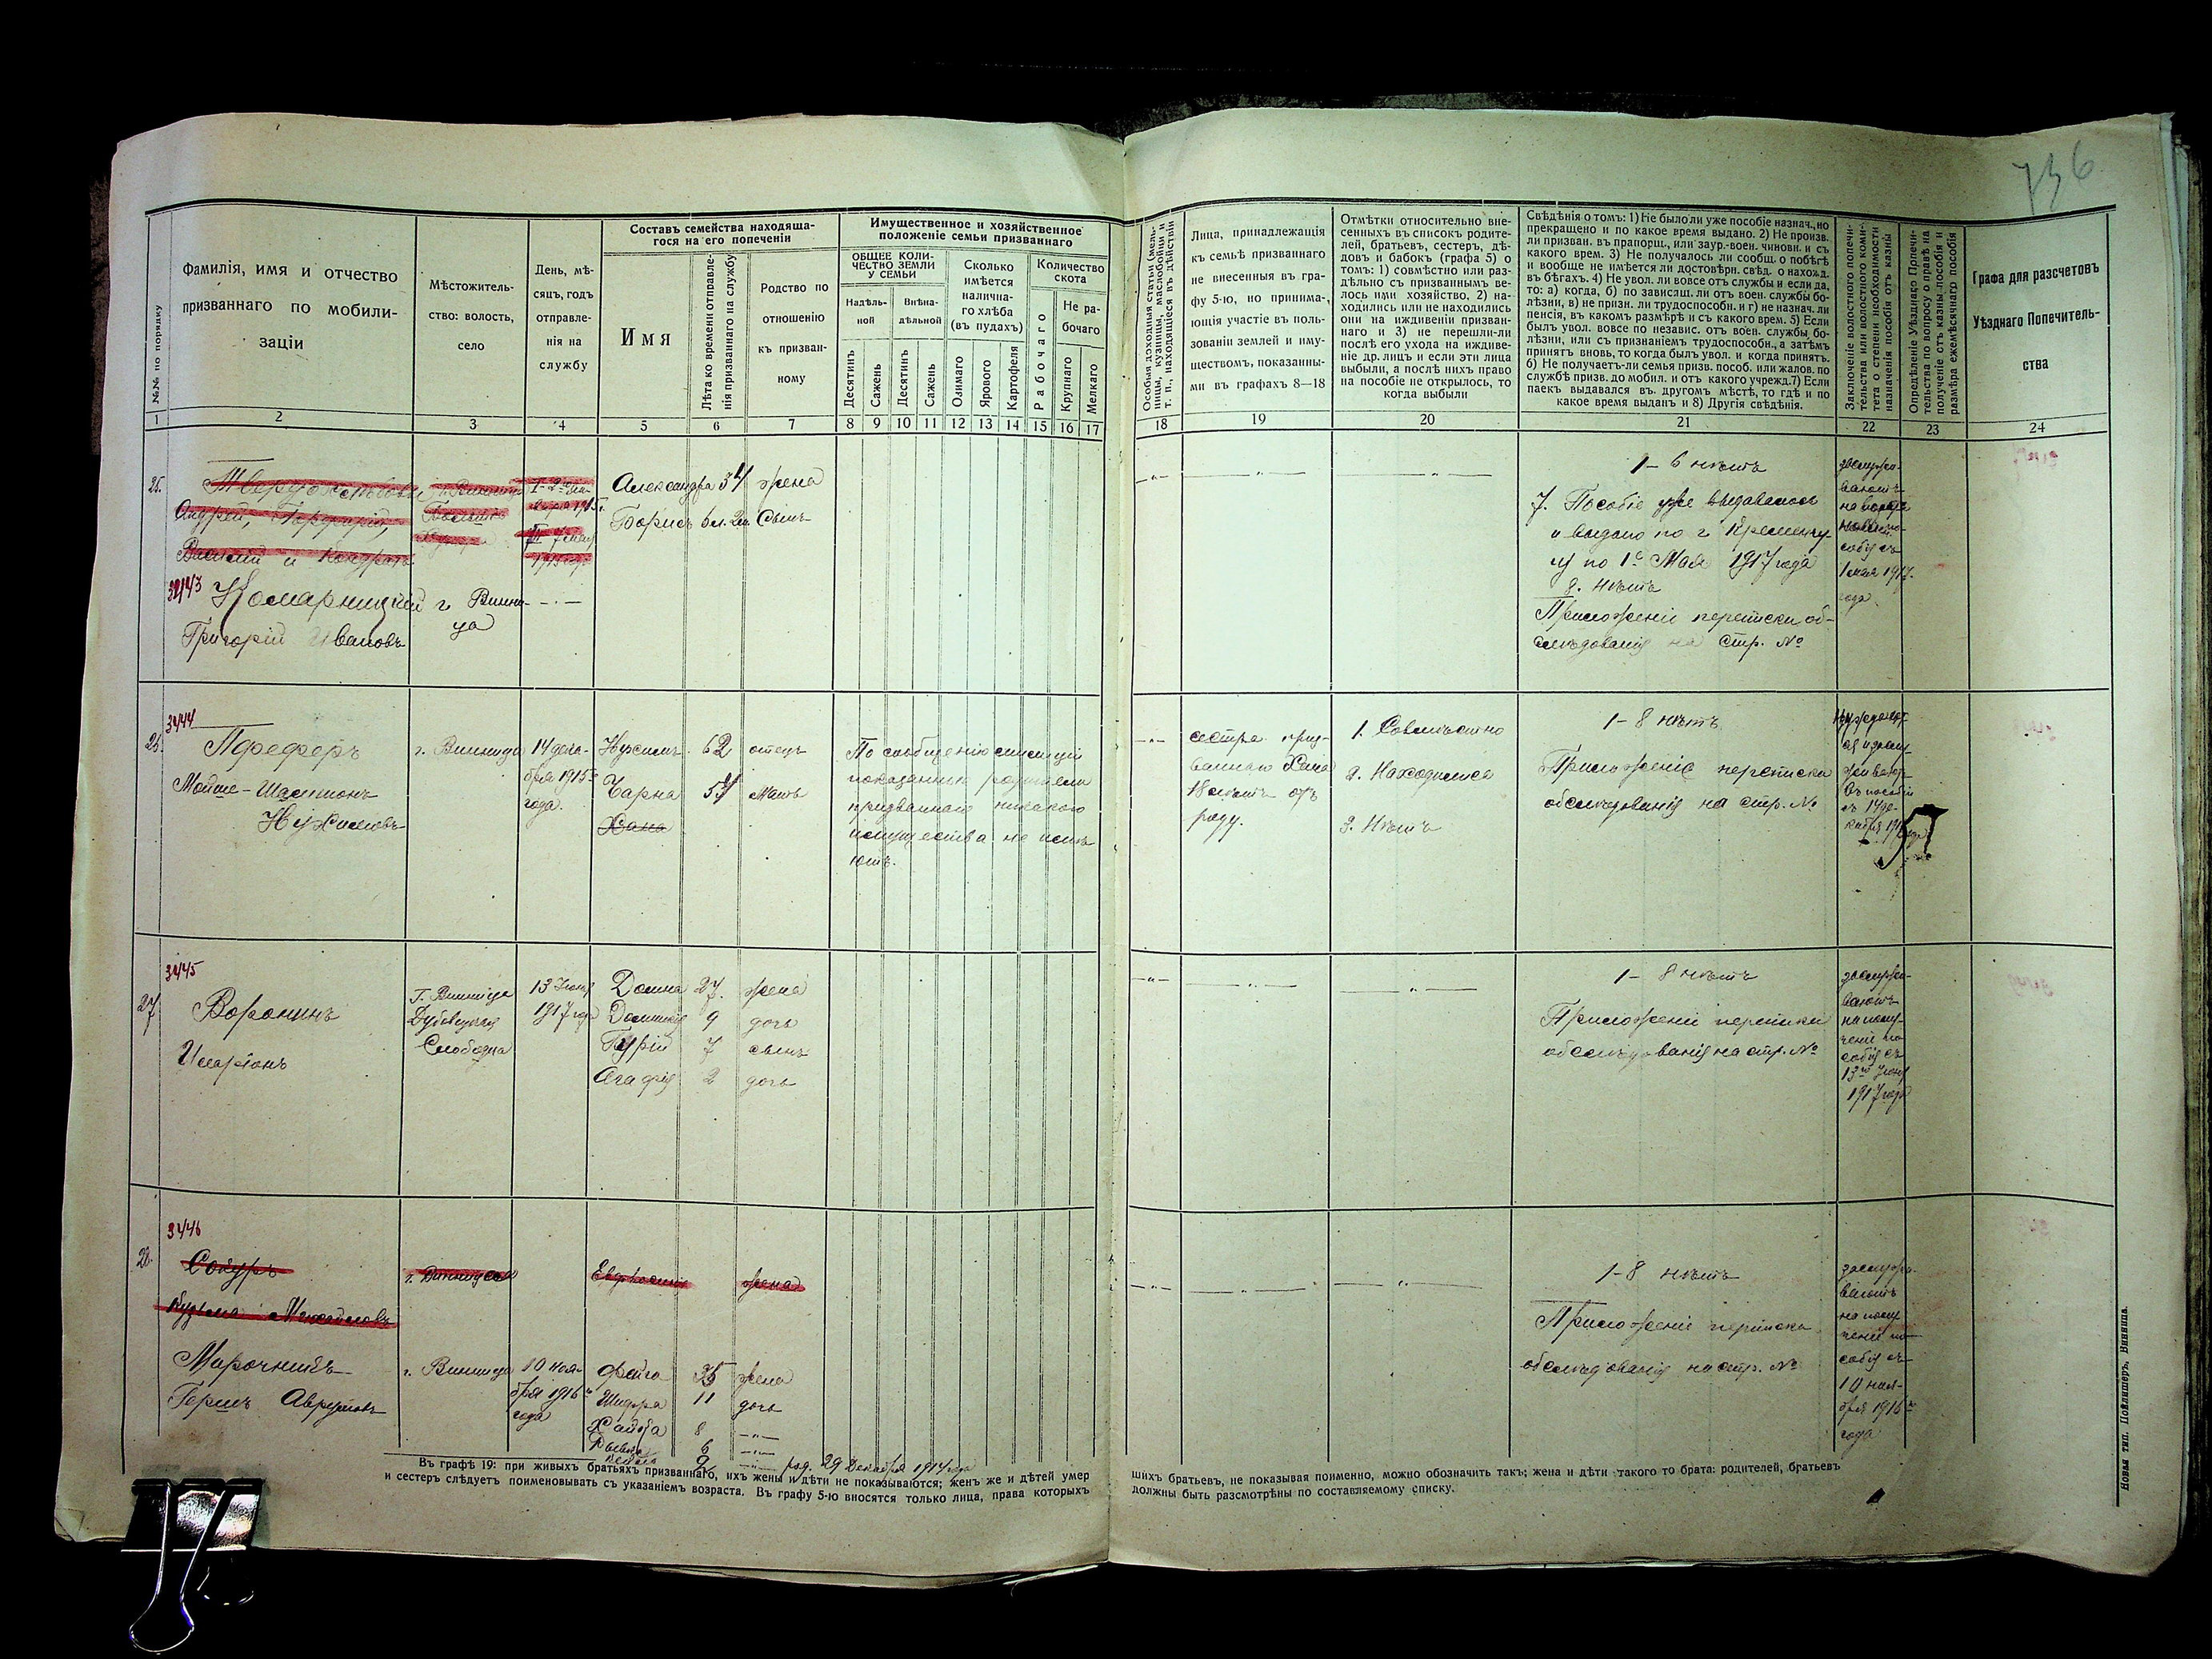 736
№№ по порядку
Фамилія, имя и отчество
призваннаго по мобили-
заціи
Мѣстожитель-
ство: волость,
село
День, мѣ-
сяцъ, годъ
отправле-
нія на
службу
Составъ семейства находяща-
гося на его попеченіи
Имя
Лѣта ко времени отправле-
нія призваннаго на службу
Родство по
отношенію
къ призван-
ному
Имущественное и хозяйственное
положеніе семьи призваннаго
ОБЩЕЕ КОЛИ-
ЧЕСТВО ЗЕМЛИ
У СЕМЬИ
Надѣль-
ной
Внѣна-
дѣльной
Десятинъ
Сажень
Десятинъ
Сажень
Сколько
имѣется
налична-
го хлѣба
(въ пудахъ)
Озимаго
Ярового
Картофеля
Количество
скота
Рабочаго
Не ра-
бочаго
Крупнаго
Мелкаго
1 2 3 4 5 6 7 8 9 10 11 12 13 14 15 16 17
Особыя доходныя статьи (мель-
ницы, кузницы, маслобойни и
т. п., находящіеся въ дѣйствіи
Лица, принадлежащія
къ семьѣ призваннаго
не внесенныя въ гра-
фу 5-ю, но принима-
ющія участіе въ поль-
зованіи землей и иму-
ществомъ, показанны-
ми въ графахъ 8—18
Отмѣтки относительно вне-
сенныхъ въ списокъ родите-
лей, братьевъ, сестеръ, дѣ-
довъ и бабокъ (графа 5) о
томъ: 1) совмѣстно или раз-
дѣльно съ призваннымъ ве-
лось ими хозяйство, 2) на-
ходились или не находились
они на иждивеніи призван-
наго и 3) не перешли-ли
послѣ его ухода на иждиве-
ніе др. лицъ и если эти лица
выбыли, а послѣ нихъ право
на пособіе не открылось, то
когда выбыли
Свѣдѣнія о томъ: 1) Не было ли уже пособіе назнач., но
прекращено и по какое время выдано. 2) Не произв.
ли призван. въ прапорщ., или заур.-воен. чиновн. и съ
какого врем. 3) Не получалось ли сообщ. о побѣгѣ
и вообще не имѣется ли достовѣрн. свѣд. о нахожд.
въ бѣгахъ. 4) Не увол. ли вовсе отъ службы и если да,
то: а) когда, б) по зависящ. ли отъ воен. службы бо-
лѣзни, в) не призн. ли трудоспособн. и г) не назнач. ли
пенсія, въ какомъ размѣрѣ и съ какого врем. 5) Если
былъ увол. вовсе по независ. отъ воен. службы бо-
лѣзни, или съ признаніемъ трудоспособн., а затѣмъ
принятъ вновь, то когда былъ увол. и когда принятъ.
6) Не получаетъ-ли семья призв. пособ. или жалов. по
службѣ призв. до мобил. и отъ какого учрежд. 7) Если
паекъ выдавался въ другомъ мѣстѣ, то гдѣ и по
какое время выданъ и 8) Другія свѣдѣнія.
Заключеніе волостного попечи-
тельства или волостного коми-
тета о степени необходимости
назначенія пособія отъ казны
Опредѣленіе Уѣзднаго Попечи-
тельства по вопросу о правѣ на
полученіе отъ казны пособія и
размѣра ежемѣсячнаго пособія
Графа для разсчетовъ
Уѣзднаго Попечитель-
ства
18 19 20 21 22 23 24
25.
Андрей, Порфирій,
Василій и Кондратъ
Комарницкій
Григорій Ивановъ
г Винни-
ца
Александра 34 жена
Борисъ 6 л. сынъ
1- 6 нѣтъ
7. Пособіе уже выдавалось
и выдано по г Кременчу
гу по 1е Мая 1917 года
8. Нѣтъ
Приложеніе переписки об-
слѣдованія на стр. №
1 мая 1917
года
3444
Пфеферъ
Мойше-Шлемонъ
Нухимовъ
г. Винница
14 дека-
бря 1915
года.
Нухимъ 62 отецъ
Чарна 54 мать
Хана
По сообщенію милиціи
показанныя родители
призваннаго никакого
имущества не имѣ
ютъ.
сестра приз-
ваннаго Хана
18 лѣтъ отъ
роду.
1. Совмѣстно
2. Находился
3. Нѣтъ
1- 8 нѣтъ
Приложеніе переписки
обслѣдованія на стр. №
3445
27
Воронинъ
Иларіонъ
Г. Винница
Дубовецкая
Слободка
13 Іюня
1917 года
Домна 27. жена
Домникія 9 дочь
Гурій 7 сынъ
Агафія 2 дочь
1- 8 нѣтъ
Приложеніе переписки
обслѣдованія на стр. №
заслужи-
ваютъ
на полу-
ченіе по
собія съ
13го Іюня
1917 года
3446
28.
Сокуръ
Кузьма Михайловъ
г. Винница
Евфросинія
жена
Мирочникъ
Гершъ Аврумовъ
г. Винница
10 нояб-
бря 1916
года
Файга 35 жена
Шифра 11 дочь
Хайка 8
6
2 род. 29 Декабря 1914 года
1-8 нѣтъ
Приложеніе переписка
обслѣдованія на стр. №
заслужи-
ваютъ
на полу
ченіе по-
собія съ
10 ноя-
бря 1916
года
Въ графѣ 19: при живыхъ братьяхъ призваннаго, ихъ жены и дѣти не показываются; женъ же и дѣтей умер
и сестеръ слѣдуетъ поименовывать съ указаніемъ возраста. Въ графу 5-ю вносятся только лица, права которыхъ
шихъ братьевъ, не показывая поименно, можно обозначить такъ; жена и дѣти такого то брата: родителей, братьевъ
должны быть разсмотрѣны по составляемому списку.
Новая тип. Полишеръ, Винница.